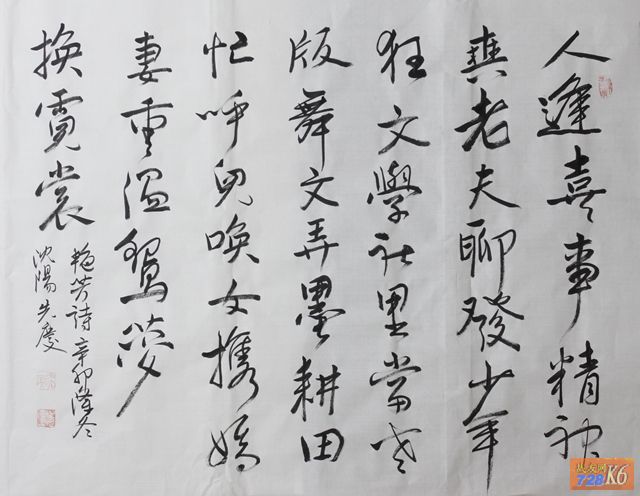 人逢喜事精神
爽老夫聊發少年
狂文學社里當老
版舞文弄墨耕田
忙呼兒喚女攜嬌
妻重溫鴛夢
換霓裳
芳詩 辛卯隆冬
沈陽 先慶
728 K6